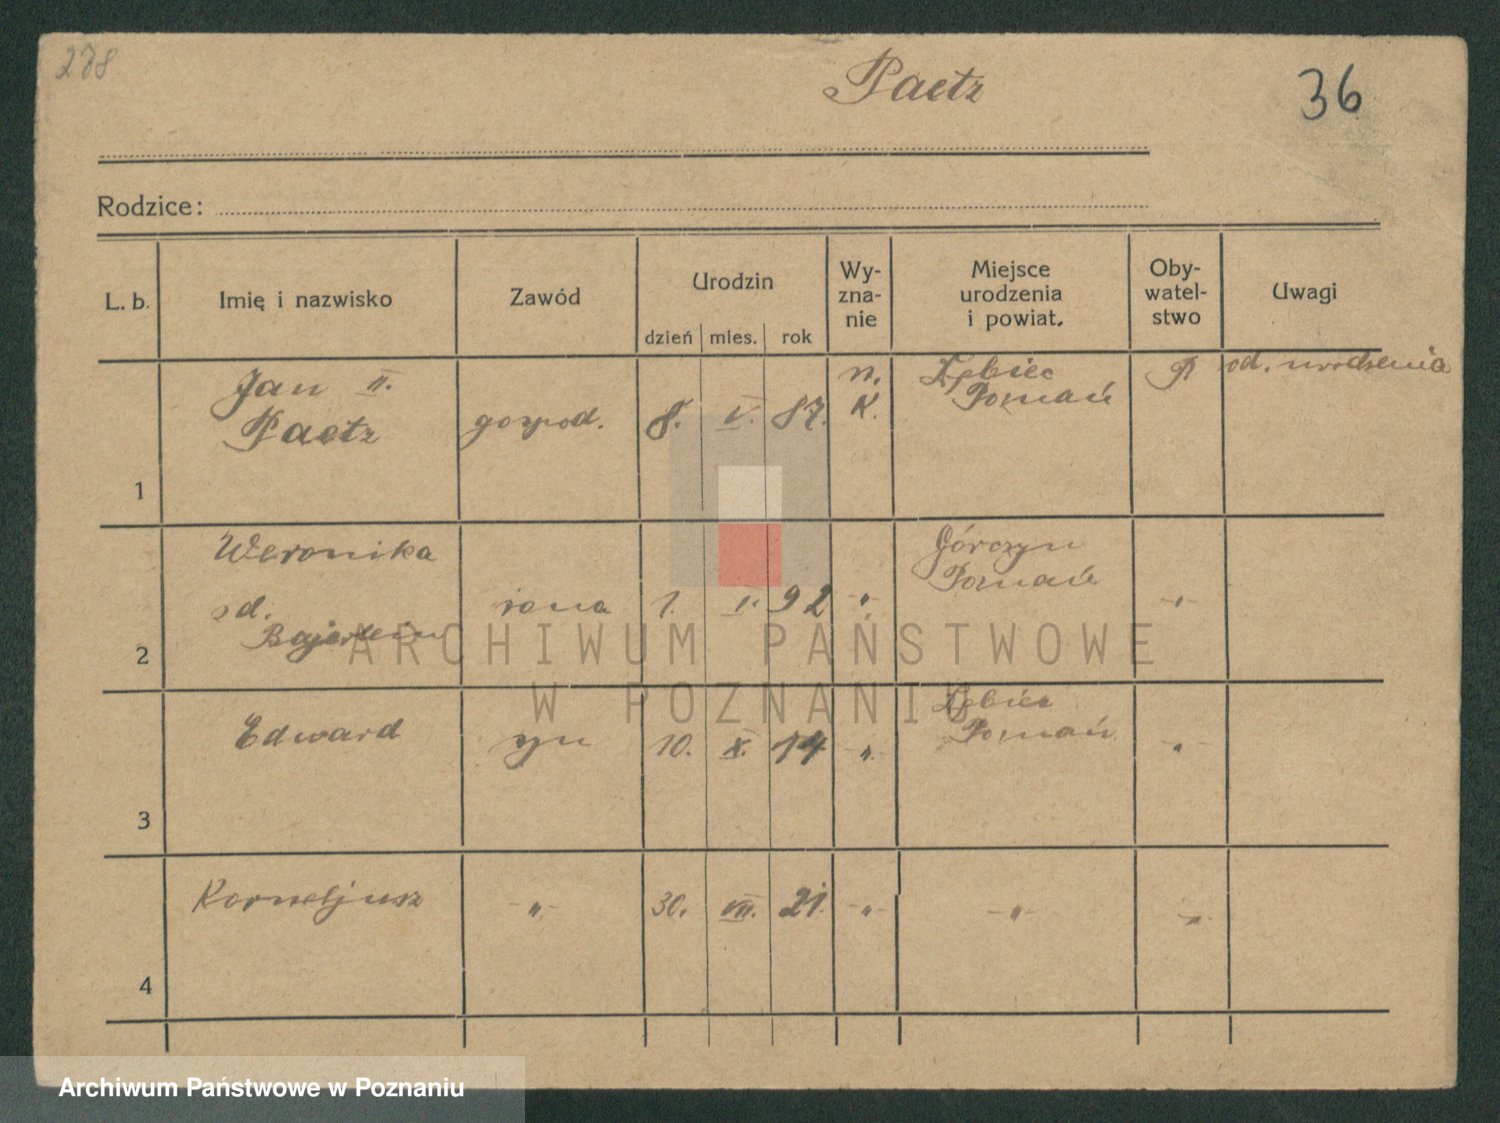 278
Paetz
36
Rodzice:
L. b.
Imię i nazwisko
Zawód
Urodzin
dzień mies. rok
Wy-
zna-
nie
Miejsce
urodzenia
i powiat.
Oby-
watel-
stwo
Uwagi
1
Jan II.
Paetz
gospod.
8. V. 87.
K.
Dębiec
Poznań
P
od. urodzenia
2
Weronika
Bajerlein
żona
1. I. 92
"
Górczyn
Poznań
"
3
Edward
syn
10. X. 14
"
Dębiec
Poznań
"
4
Korneljusz
"
30. VII. 21.
"
"
"
ARCHIWUM PAŃSTWOWE
W POZNANIU
Archiwum Państwowe w Poznaniu